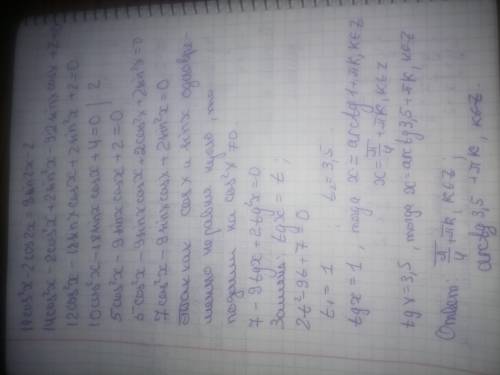 14cos²x - 2cos2x = 9sin2x - 2
14cos²x - 2cos²x + 2sin²x -
12cos²x - 18sinx cosx + 2sin²x + 2 = 0
10cos²x - 18sinx cosx + 4 = 0 | 2
5cos²x - 9sinx cosx + 2 = 0
5cos²x - 9sinx cosx + 2cos²x + 2sin²x = 0
7cos²x - 9sinx cosx + 2sin²x = 0
Так как cosx и sinx одновре-
менно не равны нулю, то
поделим на cos²x ≠ 0
7 - 9tgx + 2tg²x = 0
Замена: tgx = t;
2t² - 9t + 7 = 0
t₁ = 1 t₂ = 3,5
tgx = 1, тогда x = arctg1 + πk, k∈Z
x = π/4 + πk, k∈Z
tgx = 3,5, тогда x = arctg3,5 + πk, k∈Z
Ответ: π/4 + πk, k∈Z;
arctg 3,5 + πk, k∈Z.